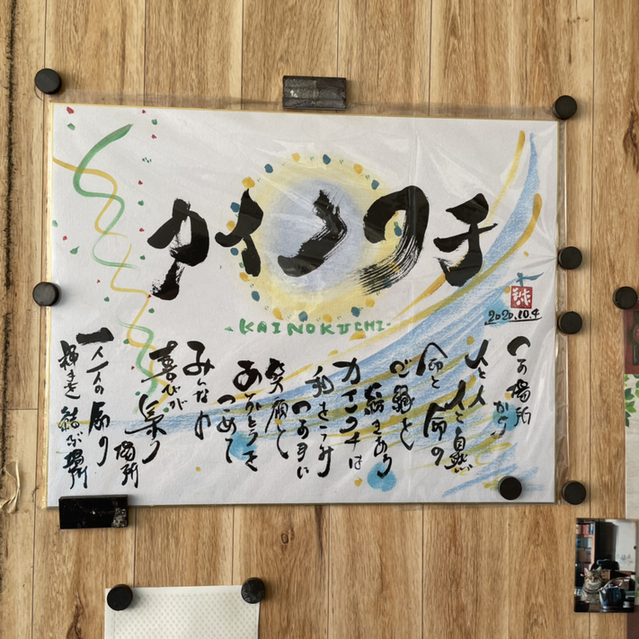 カイノクチ
-KAINOKUCHI-
2020.10.4
この場所
から
人と人 人と自然
命と命の
ご縁と
カイノクチは
和をうみ
笑顔と
ありがとうを
こめて
みんなの
喜びが
集う
場所
一人一人の
結ぶ場所